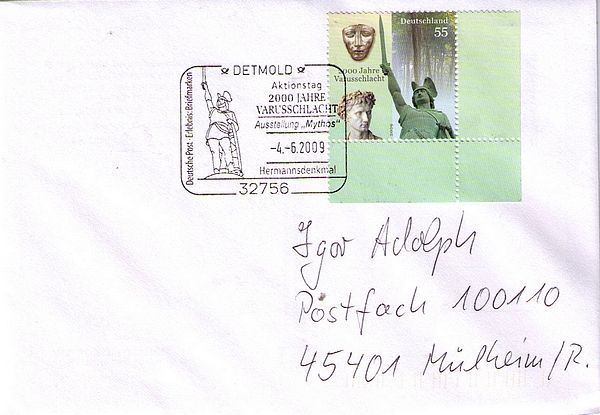 Deutschland
55
2000 Jahre
Varusschlacht
Deutsche Post · Erlebnis: Briefmarken
DETMOLD
Aktionstag
2000 JAHRE
VARUSSCHLACHT
Ausstellung „Mythos“
-4.-6.2009
Hermannsdenkmal
32756
Igor Adolph
Postfach 100110
45401 Mülheim/R.